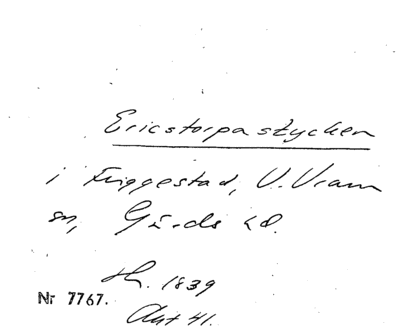 Ericstorpa stycken
i Friggestad, V. Vram
sn, Gärds hd.
Hh. 1839
Nr 7767.
Akt 41.